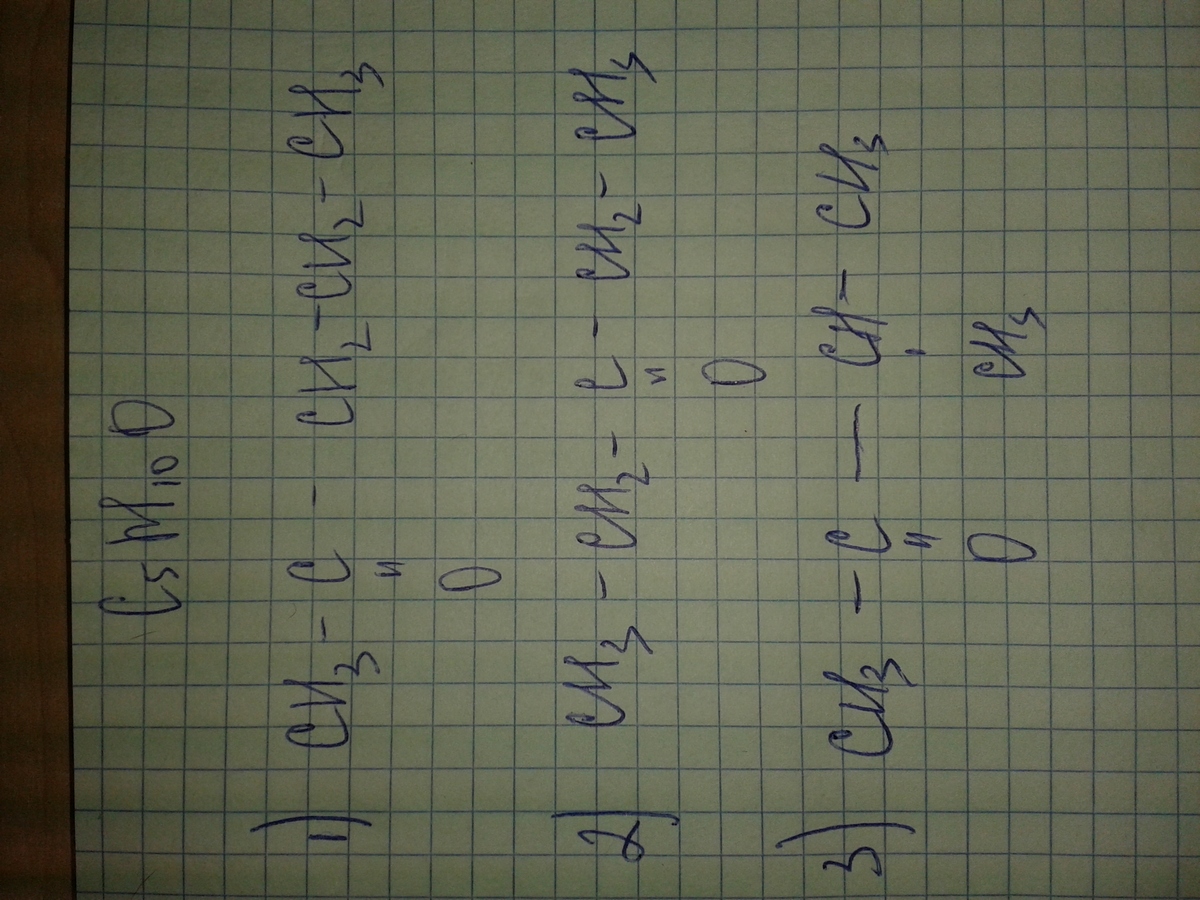 C5H10O
1) CH3 - C - CH2 - CH2 - CH3
"
O
2) CH3 - CH2 - C - CH2 - CH3
"
O
3) CH3 - C — CH - CH3
" '
O CH3